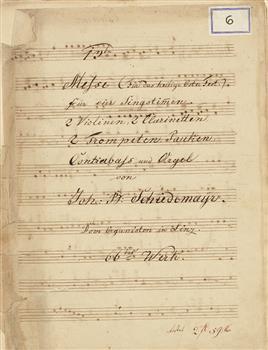 6
Messe (Für das heilige Oster Fest.)
für vier Singstimen
2 Violinen, 2 Clarinetten
2 Trompeten Pauken,
Contrabass und Orgel
von
Joh: B: Schiedermayr.
Dom Organisten in Linz.
66tes Werk.